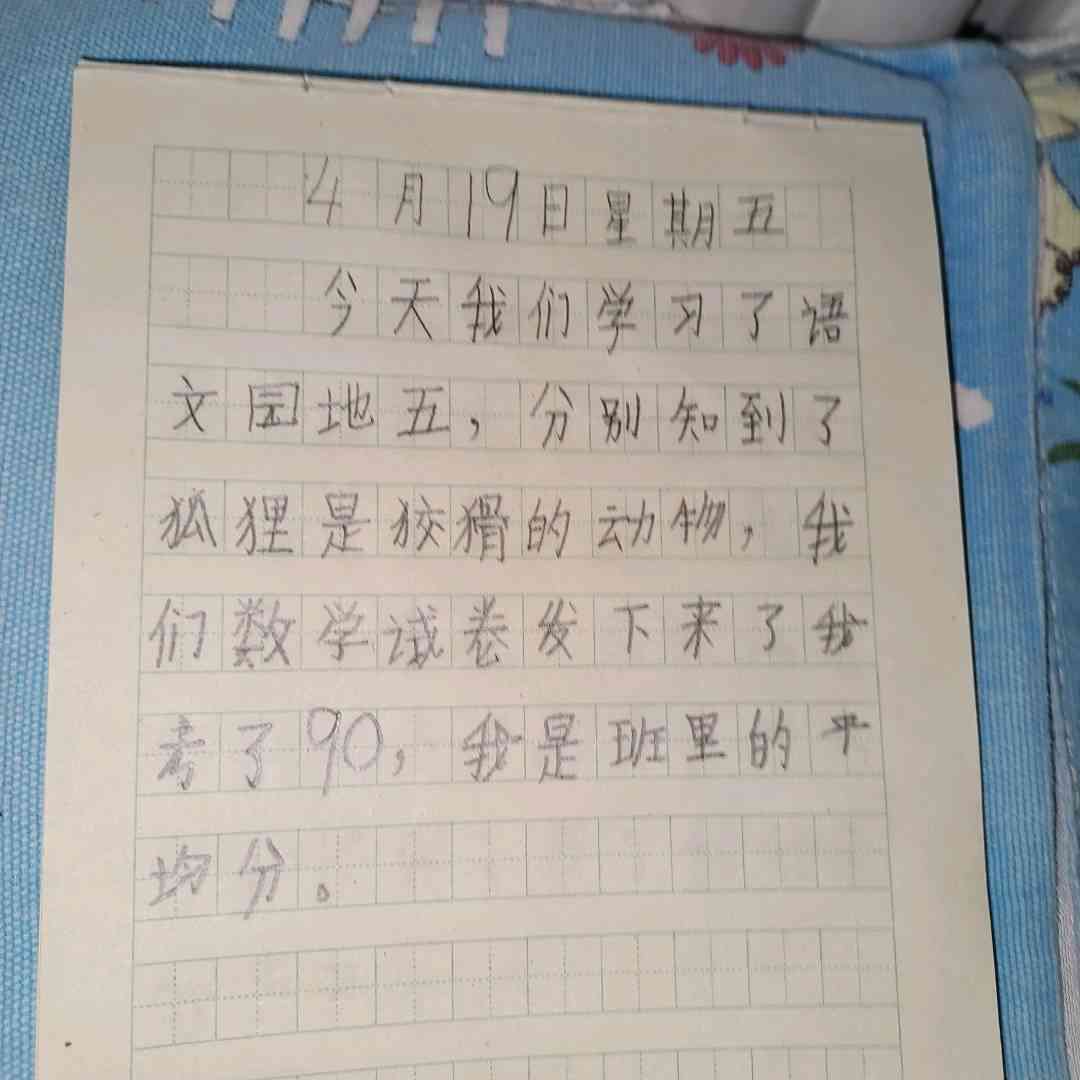 4月19日星期五
今天我们学习了语
文园地五，分别知到了
狐狸是狡猾的动物，我
们数学试卷发下来了我
考了90，我是班里的平
均分。